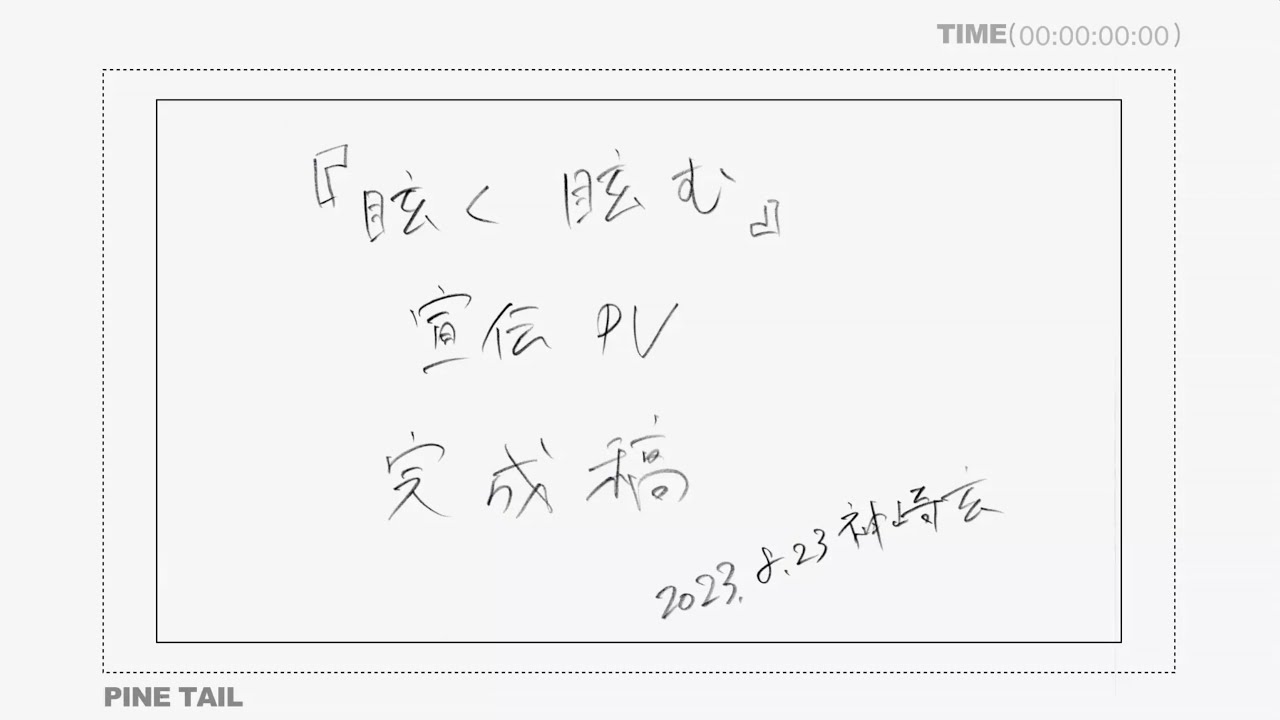 TIME(00:00:00:00)
『眩く 眩む』
宣伝 PV
完成稿
2023.8.23 神崎玄
PINE TAIL